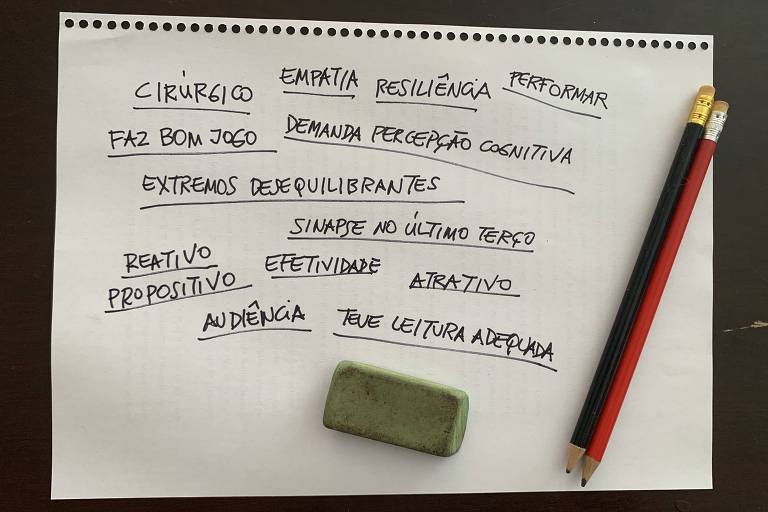 CIRÚRGICO EMPATIA RESILIÊNCIA PERFORMAR
FAZ BOM JOGO DEMANDA PERCEPÇÃO COGNITIVA
EXTREMOS DESEQUILIBRANTES
SINAPSE NO ÚLTIMO TERÇO
REATIVO EFETIVIDADE ATRATIVO
PROPOSITIVO
AUDIÊNCIA TEVE LEITURA ADEQUADA